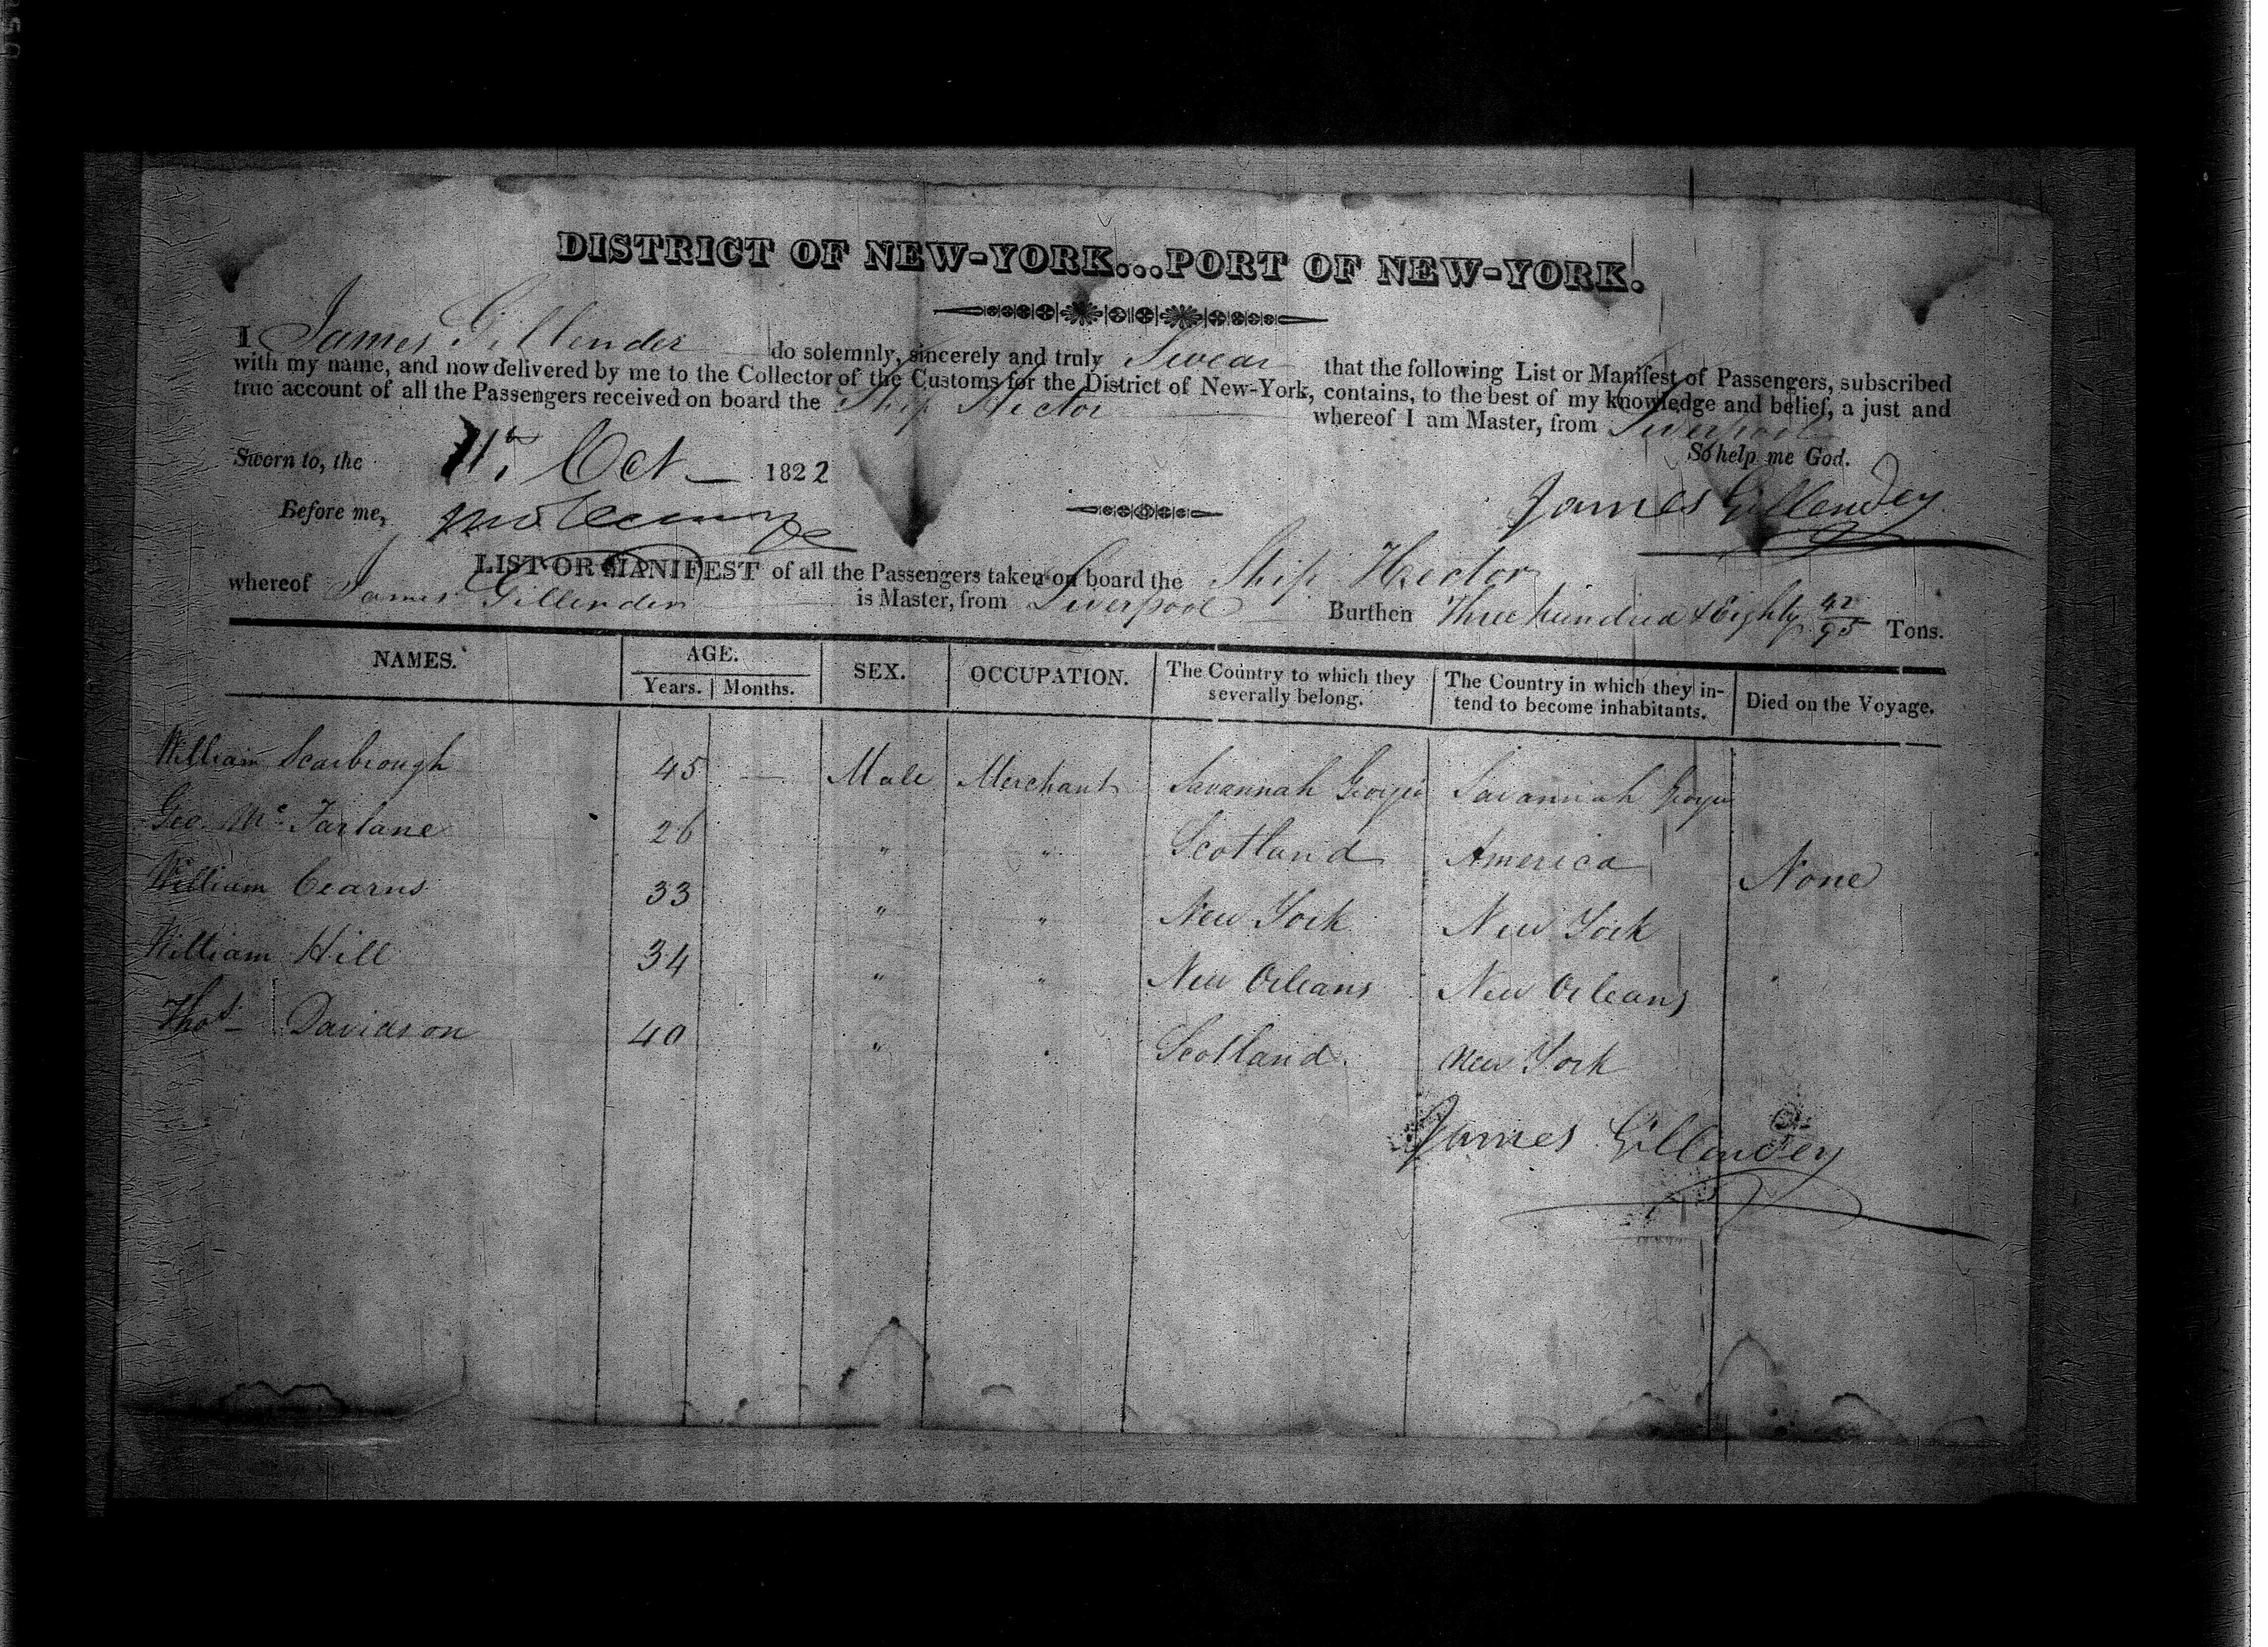 DISTRICT OF NEW-YORK...PORT OF NEW-YORK.
I James Gillender do solemnly, sincerely and truly Swear that the following List or Manifest of Passengers, subscribed
with my name, and now delivered by me to the Collector of the Customs for the District of New-York, contains, to the best of my knowledge and belief, a just and
true account of all the Passengers received on board the Ship Hector whereof I am Master, from Liverpool
So help me God.
Sworn to, the 11th Oct 1822
James Gillender
Before me,
LIST OR MANIFEST of all the Passengers taken on board the Ship Hector
whereof James Gillender is Master, from Liverpool Burthen Three hundred & Eighty 42/95 Tons.
NAMES. AGE. SEX. OCCUPATION. The Country to which they severally belong. The Country in which they intend to become inhabitants. Died on the Voyage.
Years. Months.
William Scarbrough 45 — Male Merchant Savannah Georgia Savannah Georgia
Geo. Mc Farlane 26 " " Scotland America None
William Cearns 33 " " New York New York
William Hill 34 " " New Orleans New Orleans
Thos. Davidson 40 " " Scotland New York
James Gillender